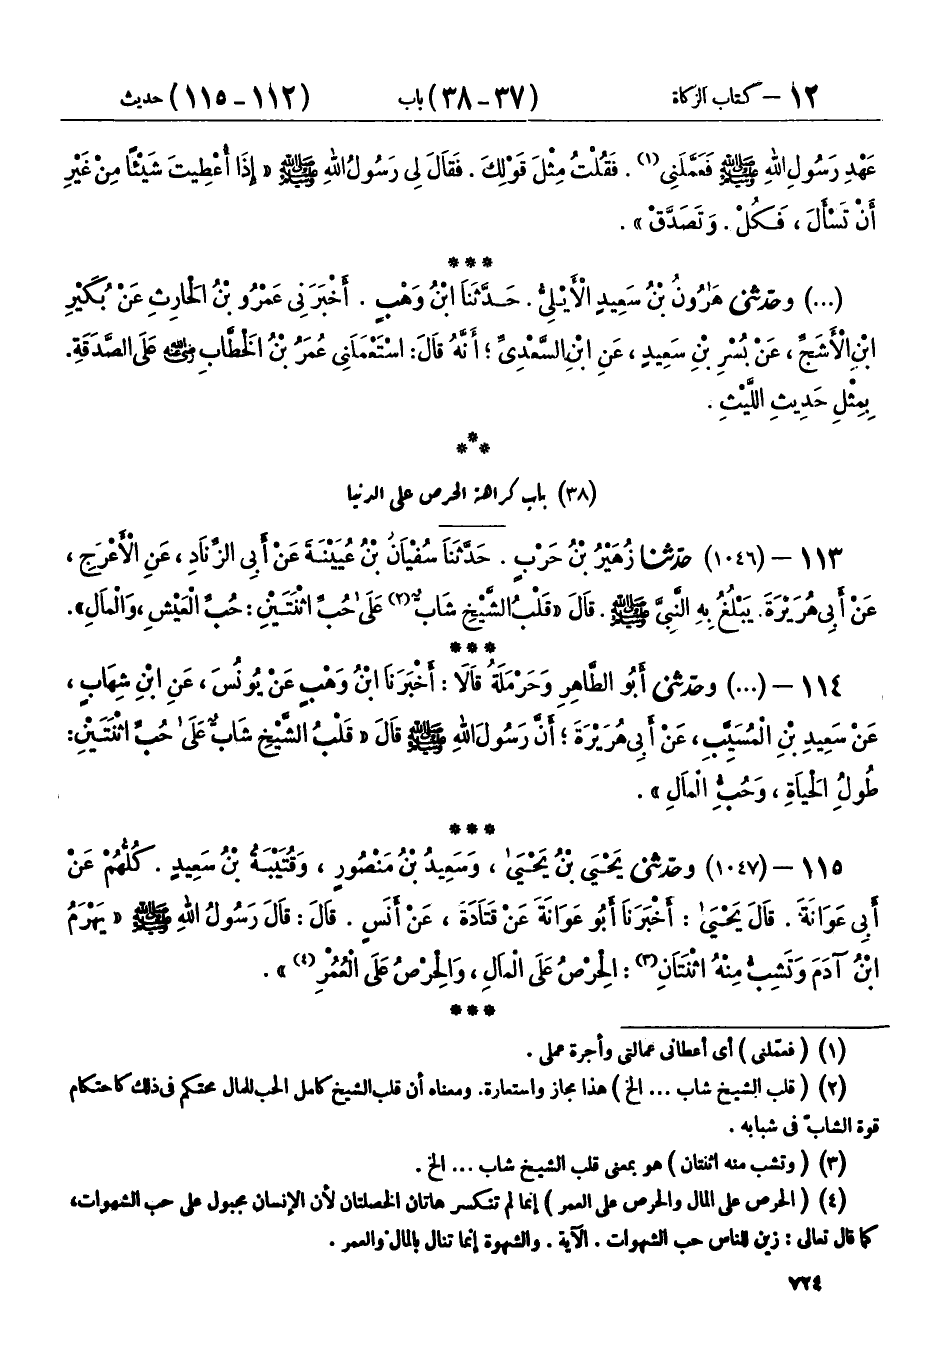 ١٢ – كتاب الزكاة (٣٧ – ٣٨) باب (١١٢ – ١١٥) حديث
عَهْدِ رَسُولِ اللهِ ﷺ فَعَمَّلَنِي (١) . فَقُلْتُ مِثْلَ قَوْلِكَ . فَقَالَ لِي رَسُولُ اللهِ ﷺ « إِذَا أُعْطِيتَ شَيْئًا مِنْ غَيْرِ
أَنْ تَسْأَلَ ، فَكُلْ . وَتَصَدَّقْ » .
***
(...) وحدثني هَارُونُ بْنُ سَعِيدٍ الْأَيْلِيُّ . حَدَّثَنَا ابْنُ وَهْبٍ . أَخْبَرَنِي عَمْرُو بْنُ الْحَارِثِ عَنْ بُكَيْرِ
ابْنِ الْأَشَجِّ ، عَنْ بُسْرِ بْنِ سَعِيدٍ ، عَنِ ابْنِ السَّعْدِيِّ ؛ أَنَّهُ قَالَ: اسْتَعْمَلَنِي عُمَرُ بْنُ الْخَطَّابِ رضي الله عنه عَلَى الصَّدَقَةِ.
بِمِثْلِ حَدِيثِ اللَّيْثِ .
***
(٣٨) باب كراهة الحرص على الدنيا
١١٣ – (١٠٤٦) حدثنا زُهَيْرُ بْنُ حَرْبٍ . حَدَّثَنَا سُفْيَانُ بْنُ عُيَيْنَةَ عَنْ أَبِي الزِّنَادِ ، عَنِ الْأَعْرَجِ ،
عَنْ أَبِي هُرَيْرَةَ. يَبْلُغُ بِهِ النَّبِيَّ ﷺ . قَالَ «قَلْبُ الشَّيْخِ شَابٌّ (٢) عَلَى حُبِّ اثْنَتَيْنِ: حُبِّ الْعَيْشِ، وَالْمَالِ».
***
١١٤ – (...) وحدثني أَبُو الطَّاهِرِ وَحَرْمَلَةُ قَالَا : أَخْبَرَنَا ابْنُ وَهْبٍ عَنْ يُونُسَ ، عَنِ ابْنِ شِهَابٍ ،
عَنْ سَعِيدِ بْنِ الْمُسَيَّبِ، عَنْ أَبِي هُرَيْرَةَ ؛ أَنَّ رَسُولَ اللهِ ﷺ قَالَ « قَلْبُ الشَّيْخِ شَابٌّ عَلَى حُبِّ اثْنَتَيْنِ:
طُولُ الْحَيَاةِ ، وَحُبُّ الْمَالِ » .
***
١١٥ – (١٠٤٧) وحدثني يَحْيَى بْنُ يَحْيَى ، وَسَعِيدُ بْنُ مَنْصُورٍ ، وَقُتَيْبَةُ بْنُ سَعِيدٍ . كُلُّهُمْ عَنْ
أَبِي عَوَانَةَ . قَالَ يَحْيَى : أَخْبَرَنَا أَبُو عَوَانَةَ عَنْ قَتَادَةَ ، عَنْ أَنَسٍ . قَالَ : قَالَ رَسُولُ اللهِ ﷺ « يَهْرَمُ
ابْنُ آدَمَ وَتَشِبُّ مِنْهُ اثْنَتَانِ (٣) : الْحِرْصُ عَلَى الْمَالِ ، وَالْحِرْصُ عَلَى الْعُمُرِ (٤) » .
***
(١) ( فعملنى ) أى أعطانى عمالتى وأجرة عملى .
(٢) ( قلب الشيخ شاب ... الخ ) هذا مجاز واستعارة. ومعناه أن قلب الشيخ كامل الحب للمال محتكم فى ذلك كاحتكام
قوة الشابّ فى شبابه .
(٣) ( وتشب منه اثنتان ) هو بمعنى قلب الشيخ شاب ... الخ .
(٤) ( الحرص على المال والحرص على العمر ) إنما لم تنكسر هاتان الخصلتان لأن الإنسان مجبول على حب الشهوات،
كما قال تعالى : زين للناس حب الشهوات . الآية . والشهوة إنما تنال بالمال والعمر .
٧٢٤